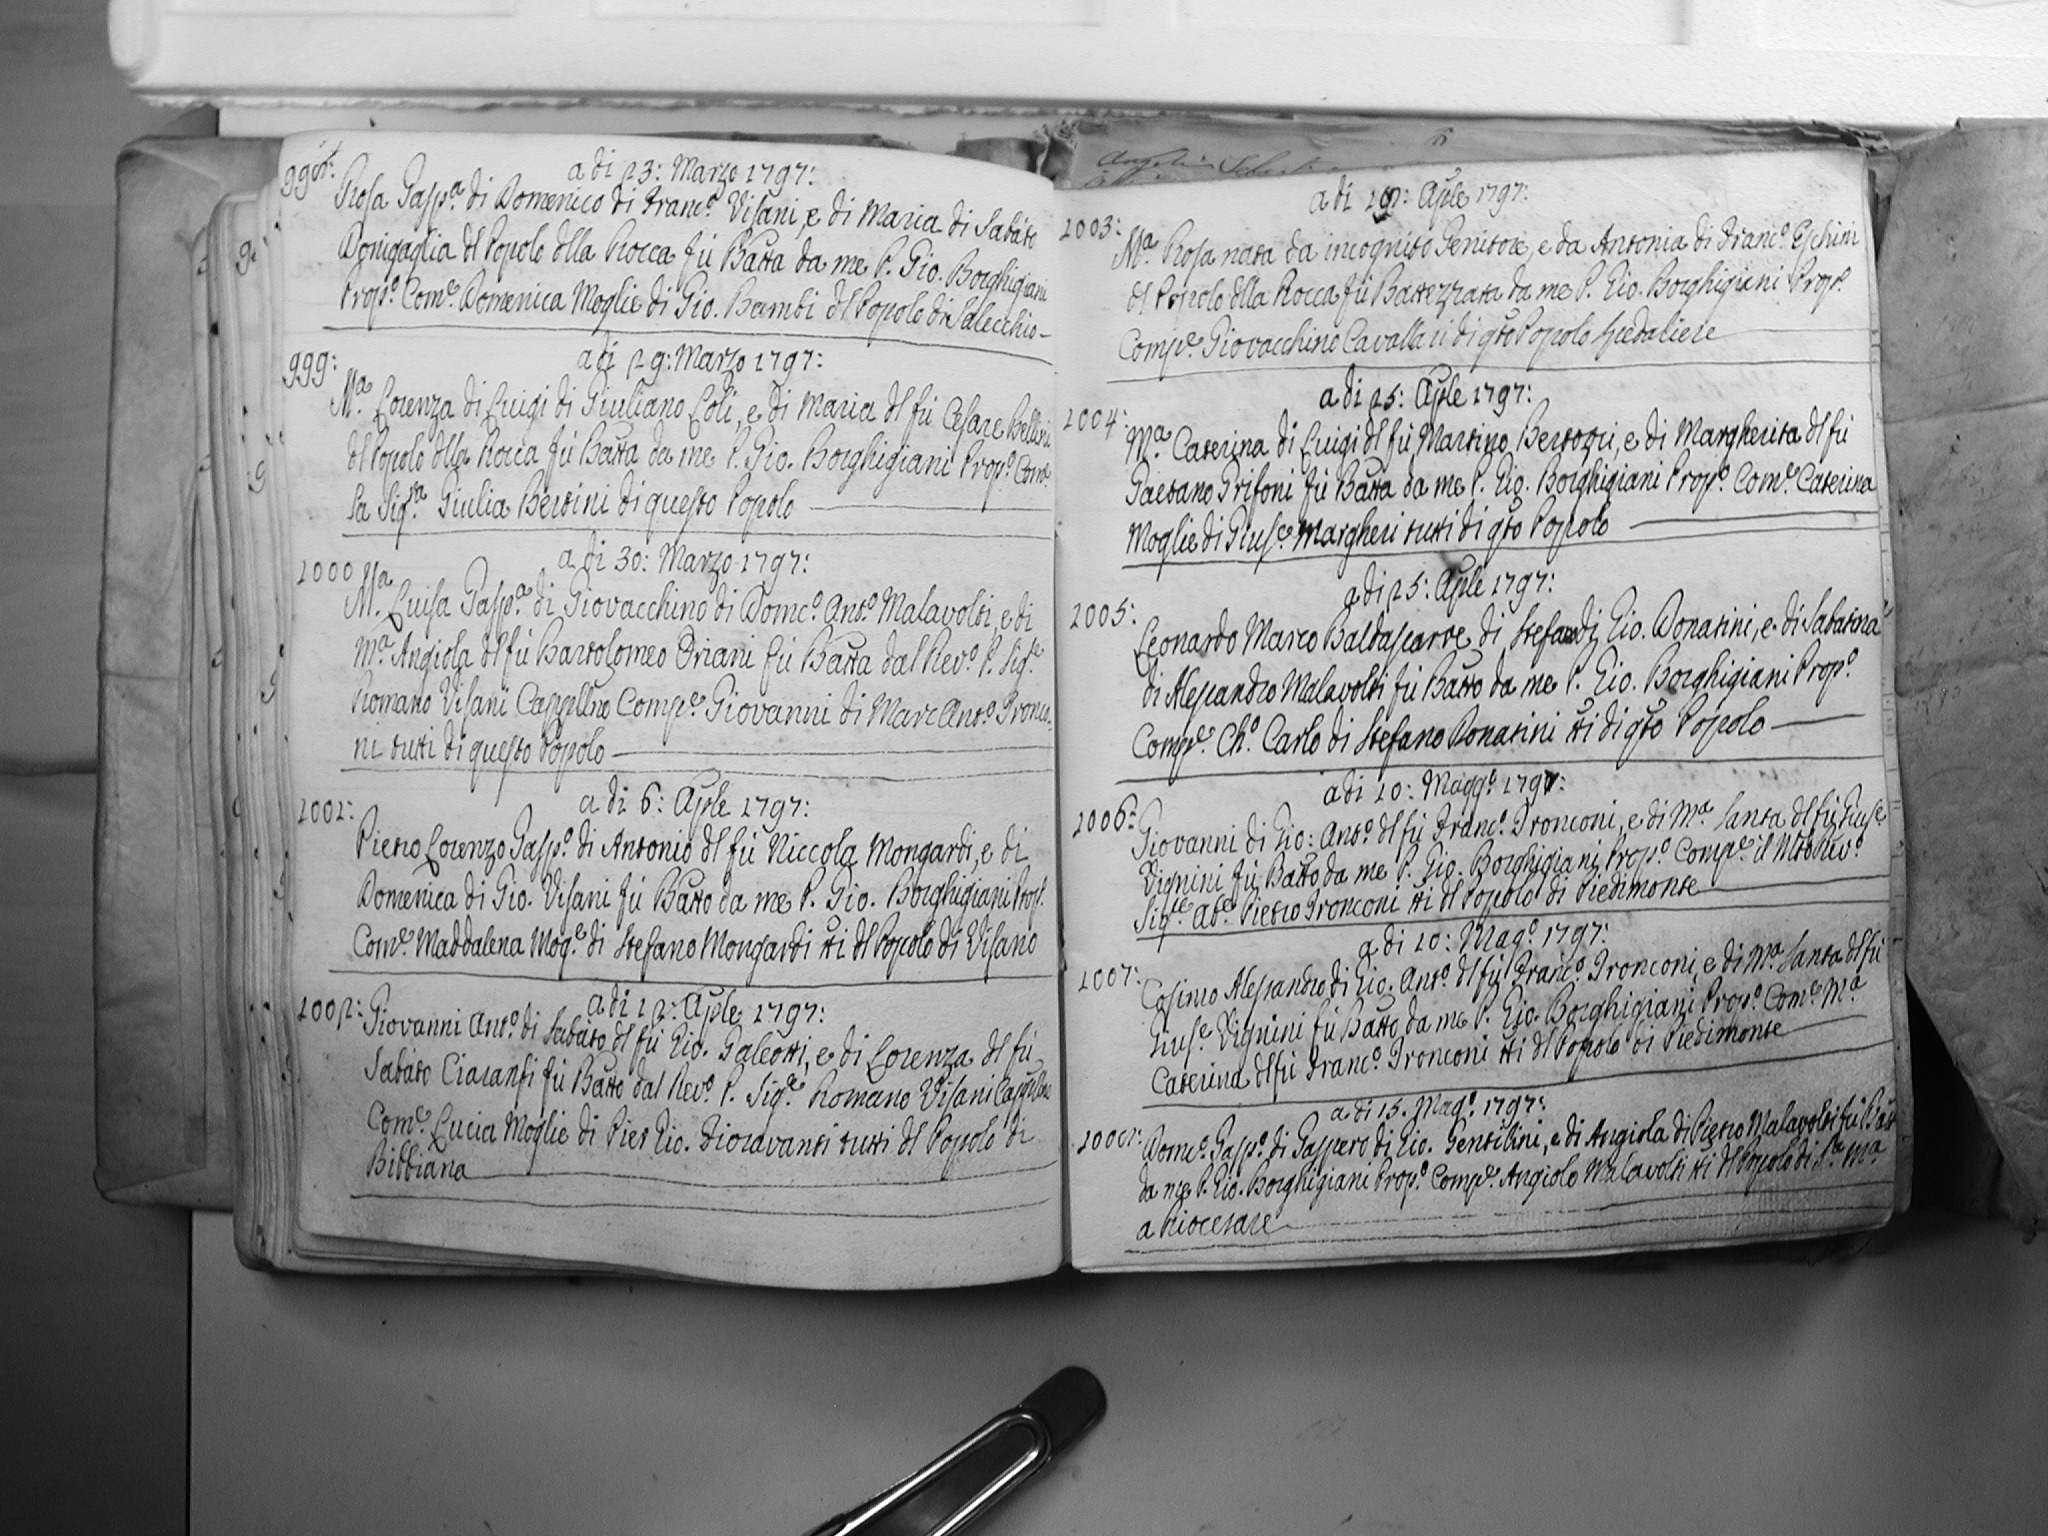 998:
a di 23: Marzo 1797:
Rosa Gasp.a di Domenico di Franc.o Visani, e di Maria di Sabato
Donigaglia dl Popolo dlla Rocca fù Batta da me P. Gio. Borghigiani
Prop.o Com.e Domenica Moglie di Gio. Bambi dl Popolo di Salecchio
999:
a di 29: Marzo 1797:
M.a Lorenza di Luigi di Giuliano Loli, e di Maria dl fù Cesare Bellini
dl Popolo dlla Rocca fù Batta da me P. Gio. Borghigiani Prop.o Com.e
la Sig.ra Giulia Bertini di questo Popolo
1000
a di 30: Marzo 1797:
M.a Luisa Gasp.a di Giovacchino di Dom.co Ant.o Malavolti, e di
M.a Angiola dl fù Bartolomeo Oriani fù Batta dal Rev.o P. Sig.e
Romano Visani Cappllno Comp.e Giovanni di Marc Ant.o Tronco-
ni tutti di questo Popolo
1001:
a di 6: Aple 1797:
Pietro Lorenzo Gasp.o di Antonio dl fù Niccola Mongardi, e di
Domenica di Gio. Visani fù Batto da me P. Gio. Borghigiani Prop.o
Com.e Maddalena Mog.e di Stefano Mongardi tti dl Popolo di Visano
1002:
a di 12: Aple 1797:
Giovanni Ant.o di Sabato dl fù Gio. Galeotti, e di Lorenza dl fù
Sabato Ciaranfi fù Batto dal Rev.o P. Sig.e Romano Visani Cappllno
Com.e Lucia Moglie di Pier Gio. Fioravanti tutti dl Popolo di
Bibbiana
a di Aple 1797:
1003:
M.a Rosa nata da incognito Genitore, e da Antonia di Franc.o Eschini
dl Popolo dlla Rocca fù Battezzata da me P. Gio. Borghigiani Prop.o
Comp.e Giovacchino Cavallari di qto Popolo Spedaliere
a di 25: Aple 1797:
1004:
M.a Caterina di Luigi dl fù Martino Bertozzi, e di Margherita dl fù
Gaetano Grifoni fù Batta da me P. Gio. Borghigiani Prop.o Com.e Caterina
Moglie di Gius.e Margheri tutti di qto Popolo
a di 25: Aple 1797:
1005:
Leonardo Marco Baldassarre di Stefano di Gio. Donatini, e di Sabatina
di Alessandro Malavolti fù Batto da me P. Gio. Borghigiani Prop.o
Comp.e Ch.o Carlo di Stefano Donatini tti di qto Popolo
a di 10: Magg.o 1797:
1006:
Giovanni di Gio: Ant.o dl fù Franc.o Tronconi, e di M.a Santa dl fù Gius.e
Vignini fù Batto da me P. Gio. Borghigiani Prop.o Comp.e il Mto Rev.o
Sig.re Ab.e Pietro Tronconi tti dl Popolo di Piedimonte
a di 10: Mag.o 1797:
1007:
Cosimo Alessandro di Gio. Ant.o dl fù Franc.o Tronconi, e di M.a Santa dl fù
Gius.e Vignini fù Batto da me P. Gio. Borghigiani Prop.o Com.e M.a
Caterina dl fù Franc.o Tronconi tti dl Popolo di Piedimonte
a di 15. Mag.o 1797:
1008:
Dom.co Gasp.o di Gaspero di Gio. Gentilini, e di Angiola di Pietro Malavolti fù Batt
da me P. Gio. Borghigiani Prop.o Comp.e Angiolo Malavolti tti dl Popolo di S.ta M.a
a Riocesare